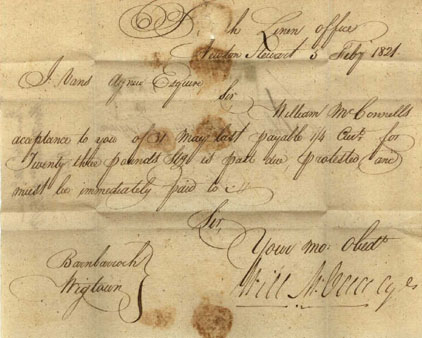 Linen Office
Newton Stewart 3 Feby 1821
J. Vans Agnew Esquire
Sir
William McConnells
acceptance to you of 31 May last payable 1/4 Curt. for
Twenty three pounds Stg. is past due, protested and
must be immediately paid to
Sir,
Your mo. Obedt.
Barnbarroch
Wigtown
Will